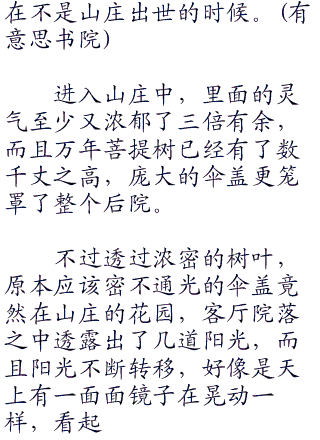 在不是山庄出世的时候。(有
意思书院)
进入山庄中，里面的灵
气至少又浓郁了三倍有余，
而且万年菩提树已经有了数
千丈之高，庞大的伞盖更笼
罩了整个后院。
不过透过浓密的树叶，
原本应该密不通光的伞盖竟
然在山庄的花园，客厅院落
之中透露出了几道阳光，而
且阳光不断转移，好像是天
上有一面面镜子在晃动一
样，看起